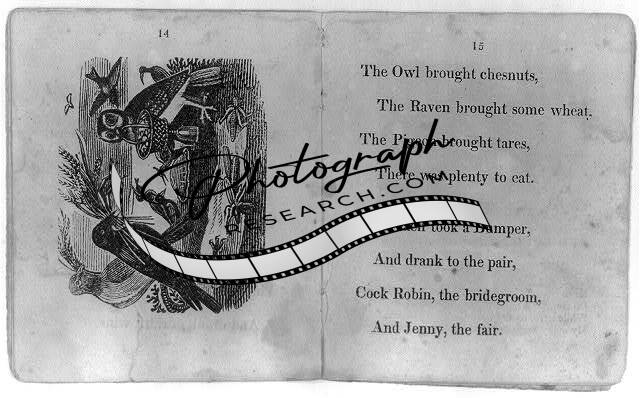 14
15
The Owl brought chesnuts,
The Raven brought some wheat,
The Pigeon brought tares,
There was plenty to eat.
took a Bumper,
And drank to the pair,
Cock Robin, the bridegroom,
And Jenny, the fair.
Photograph
RESEARCH.COM